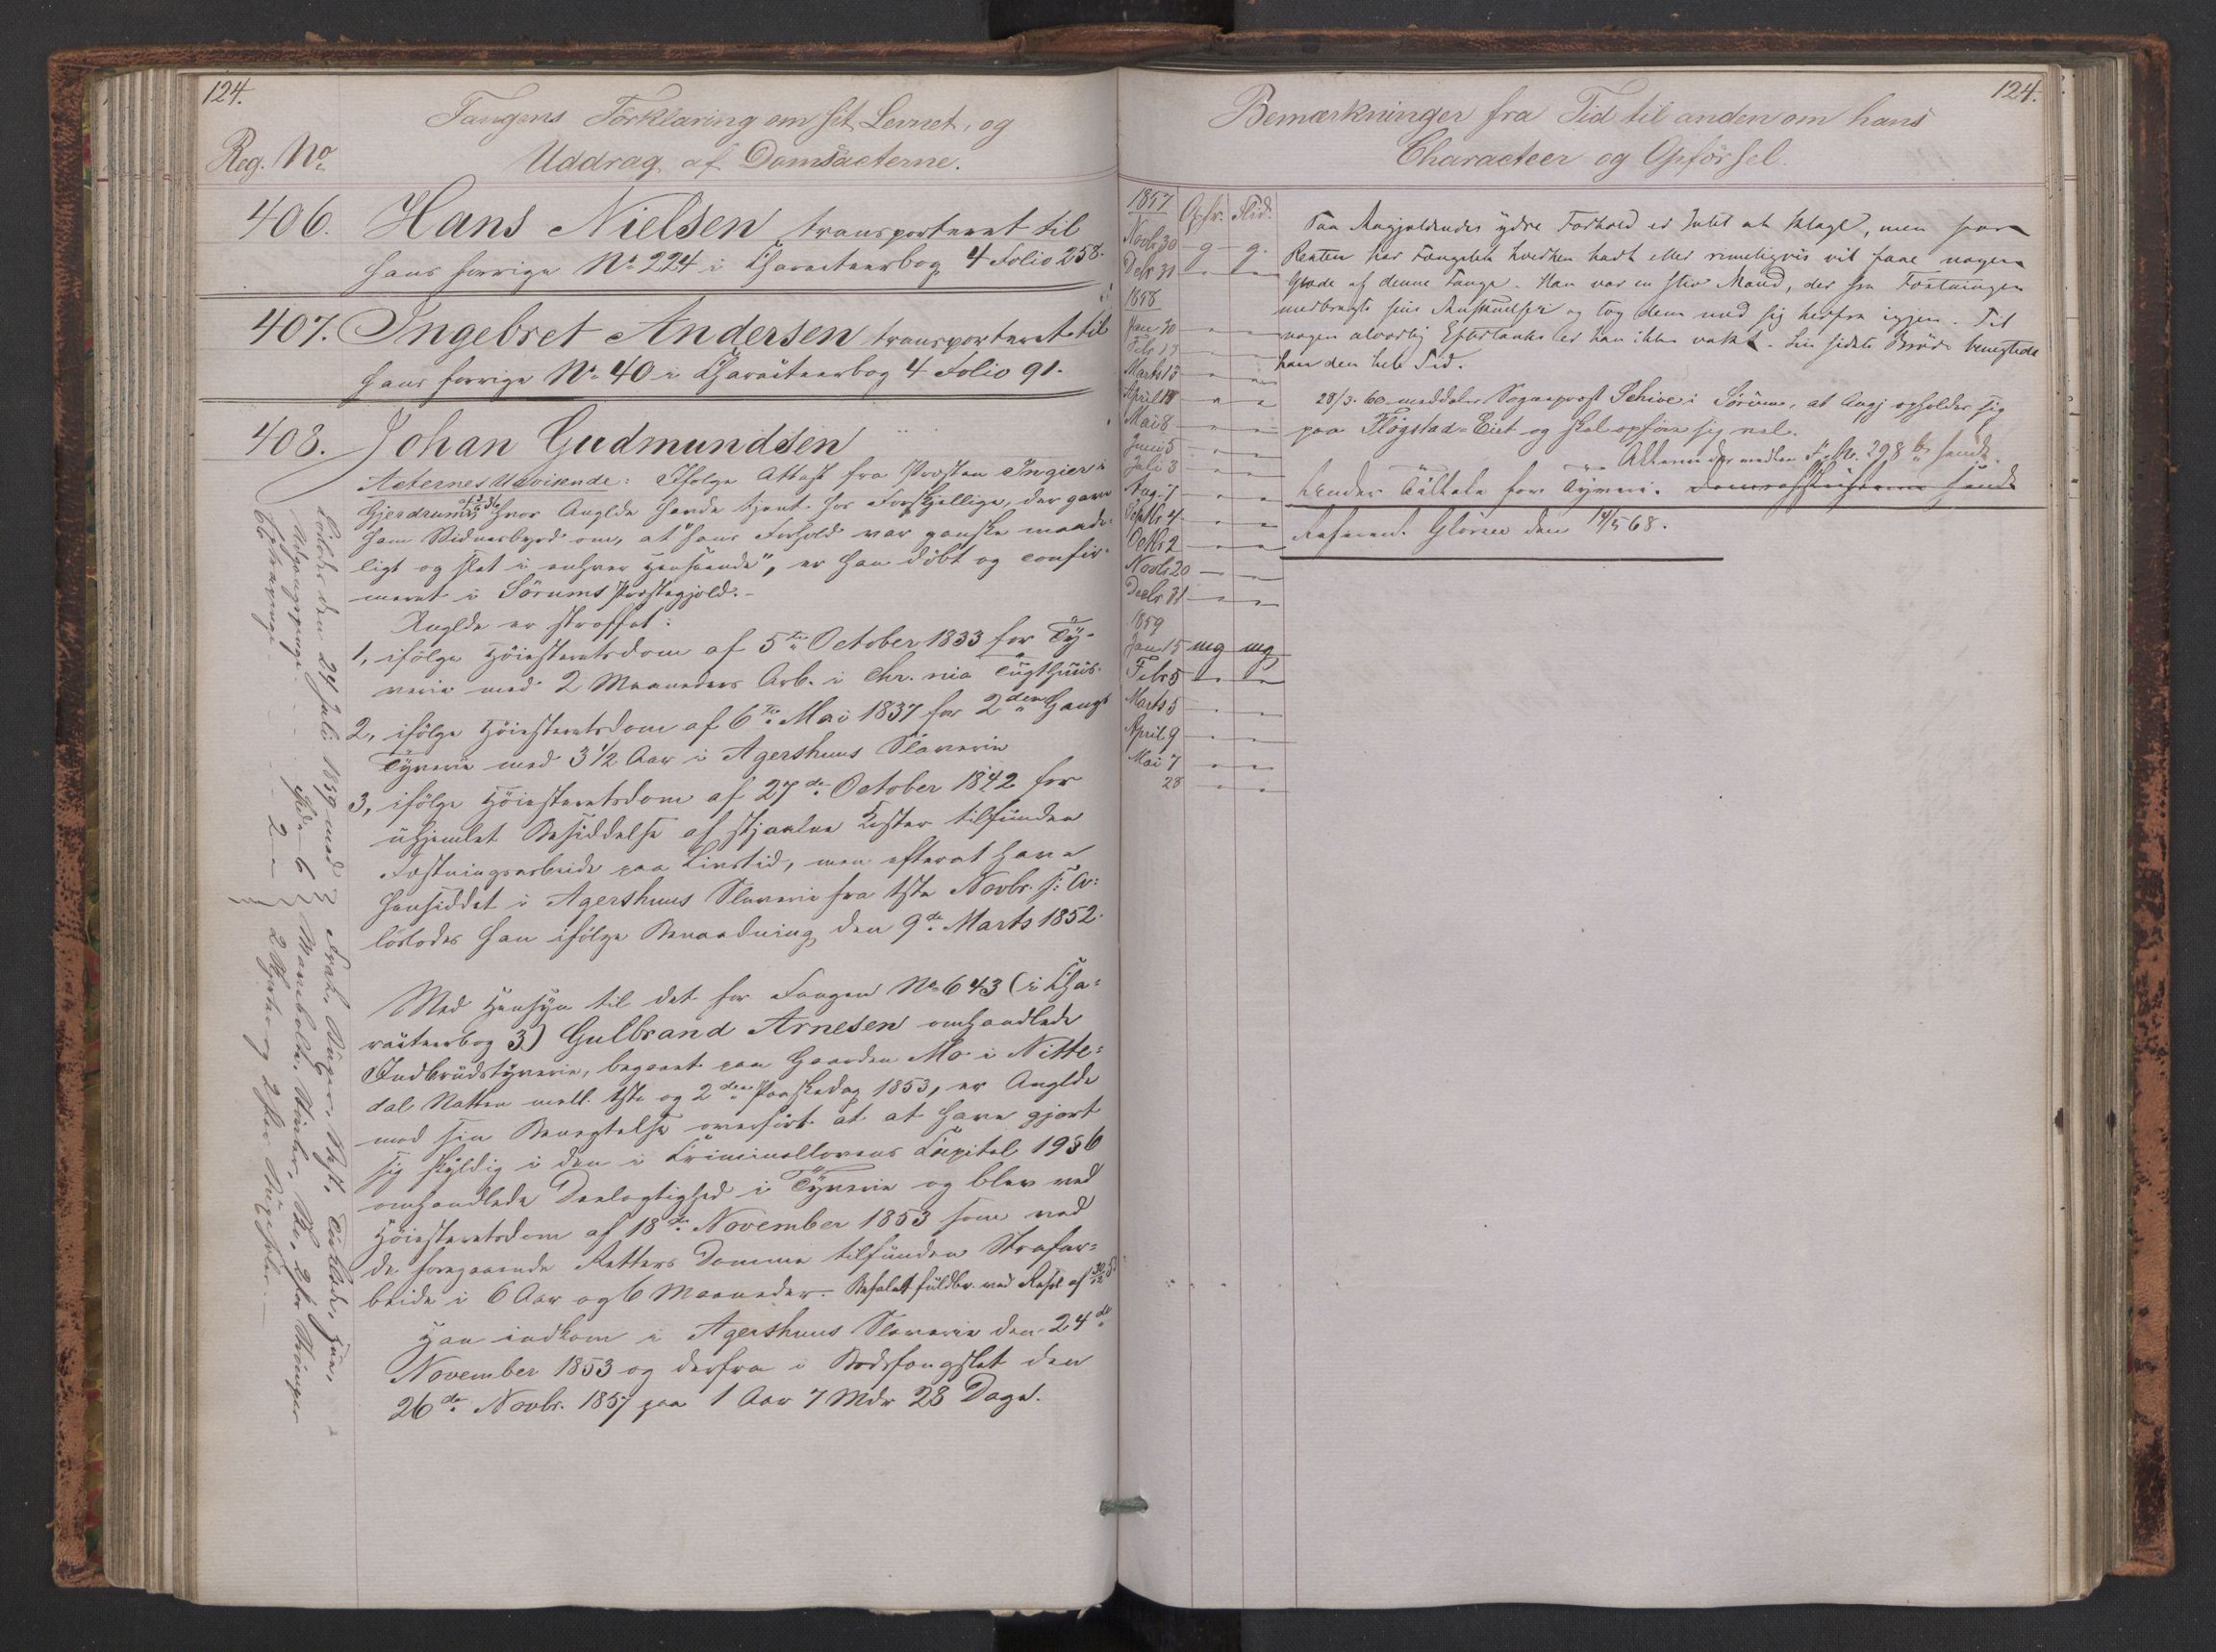 124.
Fangens Forklaring om sit Levnet, og
Reg. No
Uddrag af Domsacterne.
406. Hans Nielsen transporteret til
hans forrige No 224 i Characteerbog 4 Folio 258.
407. Ingebret Andersen transporteret til
hans forrige No 40 i Characteerbog 4 Folio 91.
408. Johan Gudmundsen
Acternes Udvisende: Ifølge Attest fra Presten Ingier i
Gjerdrum, hvor Anglde havde tjent hos Forskjellige, der gave
ham Vidnesbyrd om, at "hans Forhold var ganske maade-
ligt og slet i enhver Henseende", er han döbt og confir-
meret i Sörums Prestegjeld.-
Anglde er straffet:
1, ifølge Höiesteretsdom af 5te October 1833 for Ty-
verie med 2 Maaneders Arb. i Chr.nia Tugthuus.
2, ifølge Höiesteretsdom af 6te Mai 1837 for 2den Gangs
Tyverie med 3 1/2 Aar i Agershuus Slaverie
3, ifølge Höiesteretsdom af 27de October 1842 for
uhjemlet Besiddelse af stjaalne Koster tilfunden
Fæstningsarbeide paa Livstid, men efterat have
hensiddet i Agershuus Slaverie fra 1ste Novbr. s: A:
löslodes han ifølge Benaadning den 9de Marts 1852.
Med Hensyn til det for Fangen No 643 (i Cha-
racteerbog 3) Gulbrand Arnesen omhandlede
Indbrudstyverie, begaaet paa Gaarden Mo i Nitte-
dal Natten mell. 1ste og 2den Paaskedag 1853, er Anglde
mod sin Benegtelse overfört at at have gjort
sig skyldig i den i Criminallovens Capitel 19 § 6
omhandlede Deelagtighed i Tyverie og blev ved
Höiesteretsdom af 18de November 1853 som ved
de foregaaende Retters Domme tilfunden Strafar-
beide i 6 Aar og 6 Maaneder. Befalet fuldbr. ved Resol af
Han indkom i Agershuus Slaverie den 24de
November 1853 og derfra i Bodsfængslet den
26de Novbr. 1857 paa 1 Aar 7 Mdr 28 Dage.
Löslodes den 24 Juli 1859 med
124.
Bemærkninger fra Tid til anden om hans
Characteer og Opförsel.
1857 Opfr. Flid.
Novbr 30 g g.
Dcbr 31 " "
1858
Jan 30 " "
Febr " "
Marts 13 " "
April 18 " "
Mai 8 " "
Juni 5 " "
Juli 3 " "
Aug. 7 " "
Septbr 4 " "
Octbr 2 " "
Novbr 20 " "
Decbr 31 " "
1859
Jan 15 mg mg
Febr 5 " "
Marts 5 " "
April 9 " "
Mai 7 " "
28 " "
Paa Angjældendes ydre Forhold er Intet at klage, men
Renten har Fængslet hverken havt eller rimeligvis vil faae nogen
Glæde af denne Fange. Han var en stiv Mand, der fra Fæstningen
medbragte sine Anskuelser og tog dem med sig herfra igjen. Til
nogen alvorlig Eftertanke er han ikke vakt. Sin sidste Bröde benegtede
han den hele Tid.
28/3. 60 meddeler Sogneprest Schive i Sörum, at Angj opholder sig
paa Flögstad-Eiet og skal opföre sig vel.
No. 298 sendt
under Tiltale for Tyveri.
den 14/5 68.